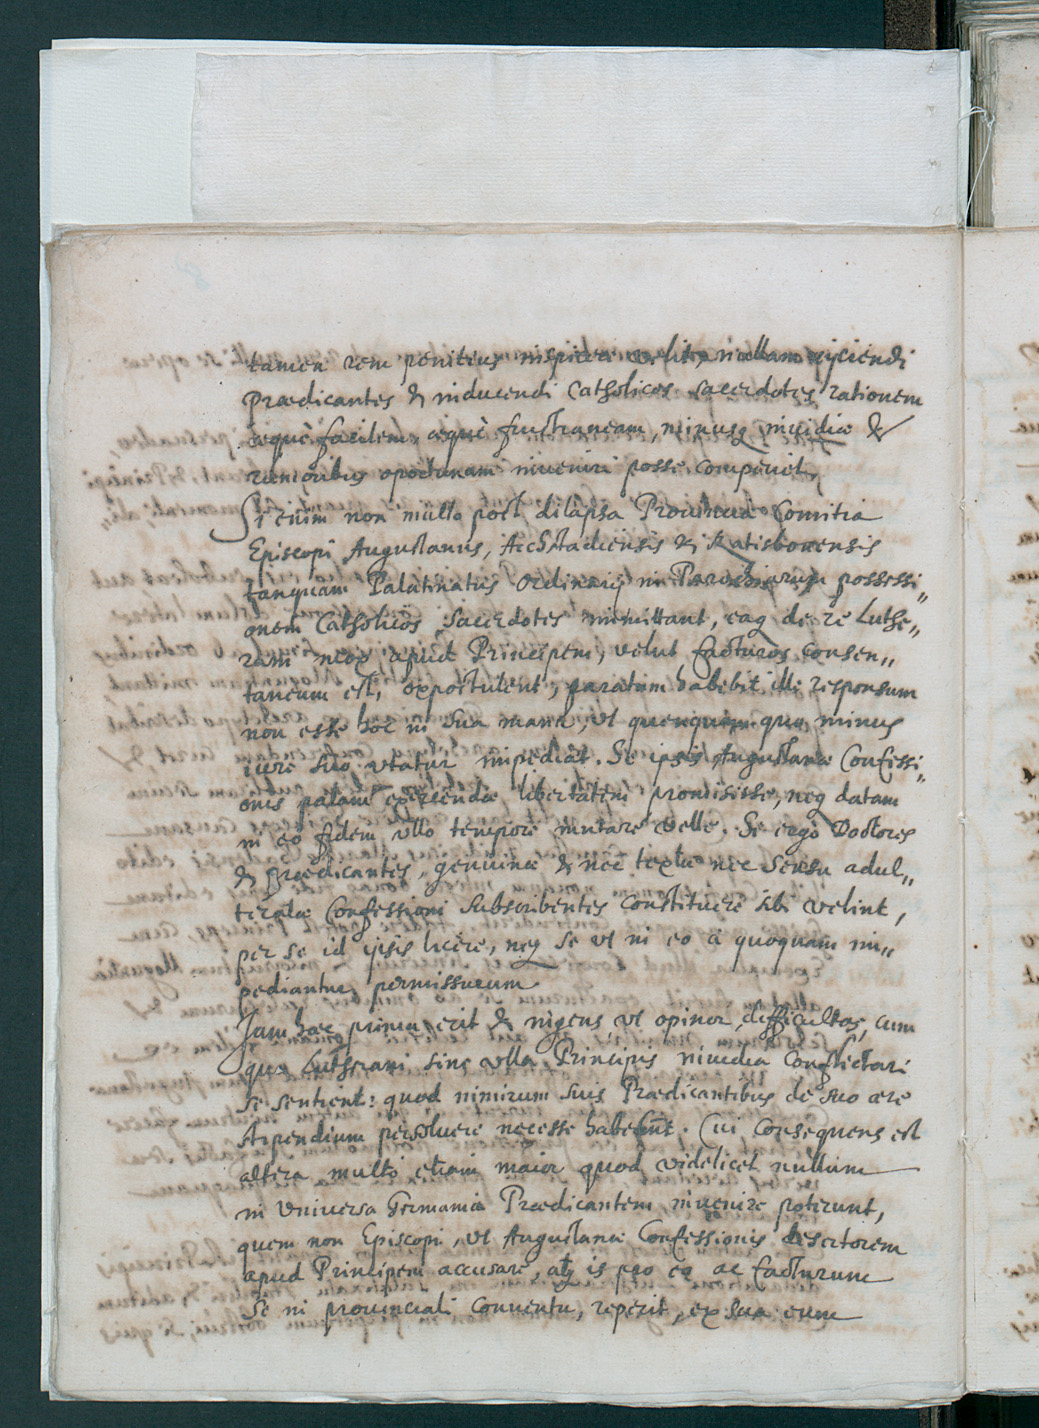 tamen rem penitius inspicere velit, nullam eijciendi
Prædicantes & inducendi Catholicos Sacerdotes rationem
æquè facilem, æquè frustraneam, minusq inuidiæ &
rumoribus oportunam inueniri posse comperiet.
Si enim non multo post dilapsa Prouincia Comitia
Episcopi Augustanus, Aichstadiensis & Ratisbonensis
tanquam Palatinatus Ordinarij in Parochiarum possessi„
onem Catholicos Sacerdotes immittant, eaq de re Luthe„
rani mox apud Principem, velut facturos consen„
taneum est, expostulent, paratum habebit illi responsum
non esse hoc in sua manu, vt quenquam quo minus
iure suo vtatur impediat. Se ipsis Augustanæ Confessi„
onis palam exercendæ libertatem promisisse, neq datam
in eo fidem vllo tempore mutare velle. Si ergo Doctores
& prædicantes, genuinæ & nec textu nec sensu adul„
teratæ Confessioni subscribentes constituere sibi velint,
per se id ipsis licere, neq se vt in eo à quoquam im„
pediantur permissurum
Jam hæc prima erit & ingens, vt opinor, difficultas, cum
qua Lutherani sine vlla Principis inuidia conflictari
se sentient: quod nimirum suis Prædicantibus de suo ære
stipendium persoluere necesse habebunt. Cui consequens est
altera multò etiam maior quod videlicet nullum
in vniversa Germania Prædicantem inuenire poterunt,
quem non Episcopi, vt Augustanæ Confessionis desertorem
apud Principem accusare, atq is pro eo ac facturum
se in prouinciali conuentu, reperit, ex sua eum